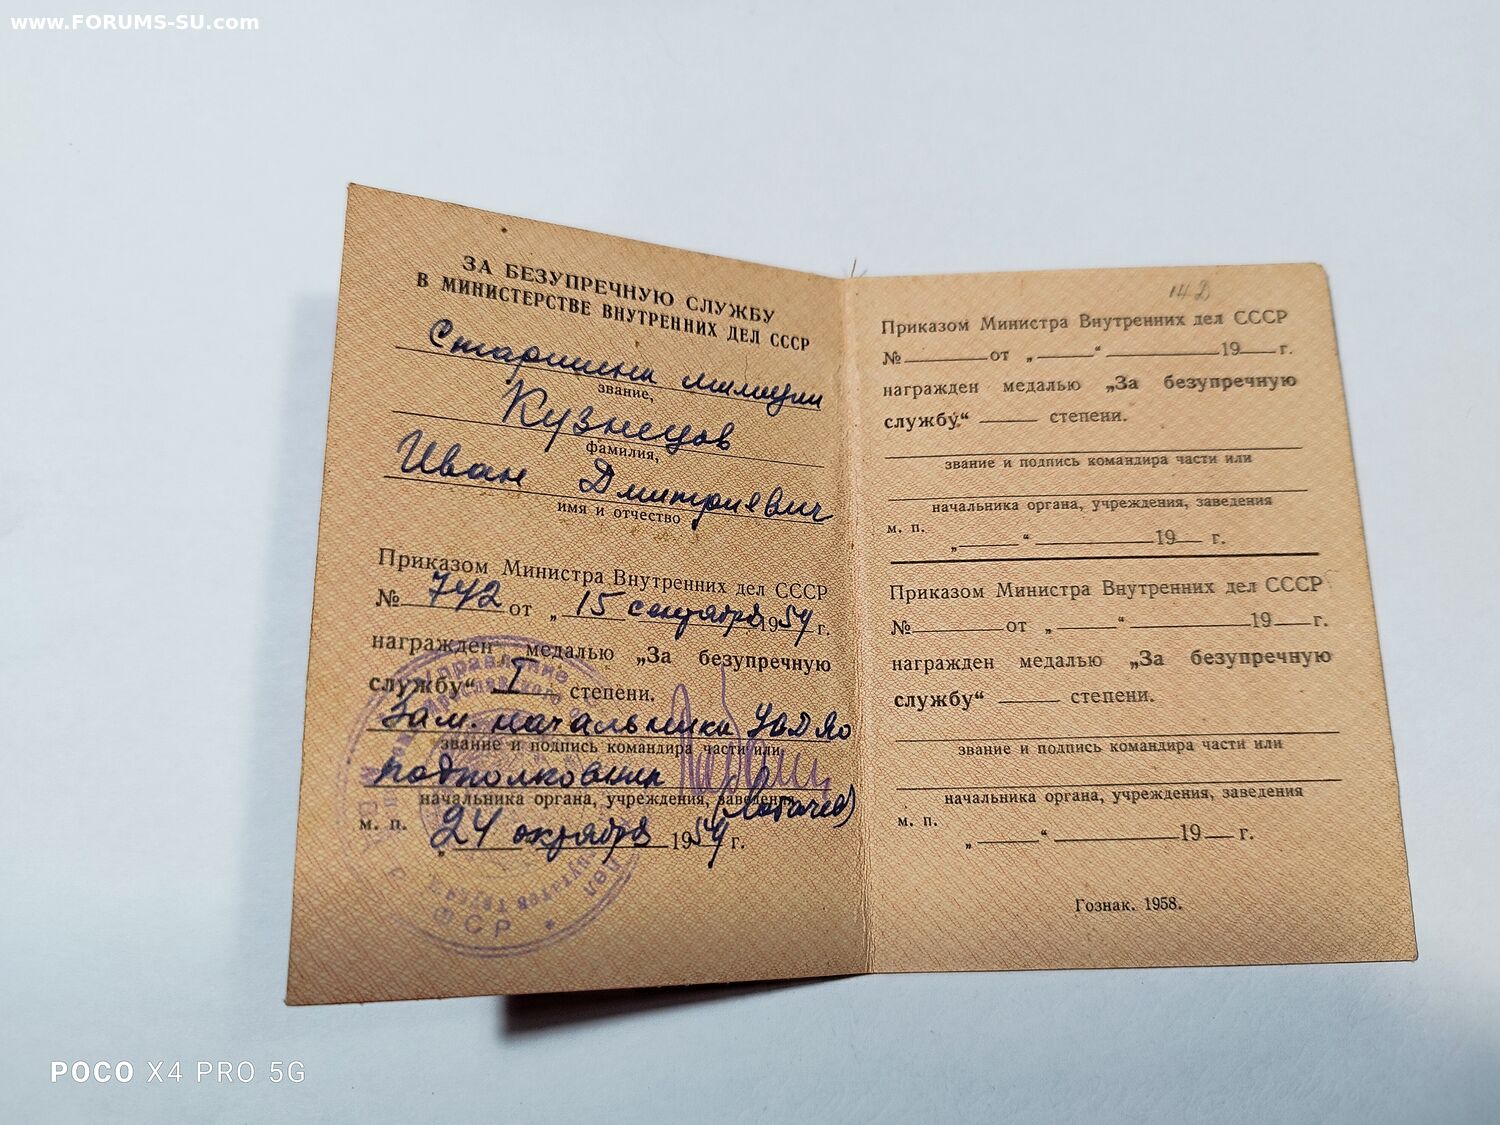 www.FORUMS-SU.com
ЗА БЕЗУПРЕЧНУЮ СЛУЖБУ
В МИНИСТЕРСТВЕ ВНУТРЕННИХ ДЕЛ СССР
Старшина милиции
звание,
Кузнецов
фамилия,
Иван Дмитриевич
имя и отчество
Приказом Министра Внутренних дел СССР
№ 742 от „15 сентября 1959 г.
награжден медалью „За безупречную
службу“ I степени.
Зам. начальника УВД ЯО
звание и подпись командира части или
подполковник
начальника органа, учреждения, заведения
м. п.
„24 октября 1959 г.
Управление
дел
142
Приказом Министра Внутренних дел СССР
№ от „ “ 19 г.
награжден медалью „За безупречную
службу“ степени.
звание и подпись командира части или
начальника органа, учреждения, заведения
м. п.
„ “ 19 г.
Приказом Министра Внутренних дел СССР
№ от „ “ 19 г.
награжден медалью „За безупречную
службу“ степени.
звание и подпись командира части или
начальника органа, учреждения, заведения
м. п.
„ “ 19 г.
Гознак. 1958.
POCO X4 PRO 5G